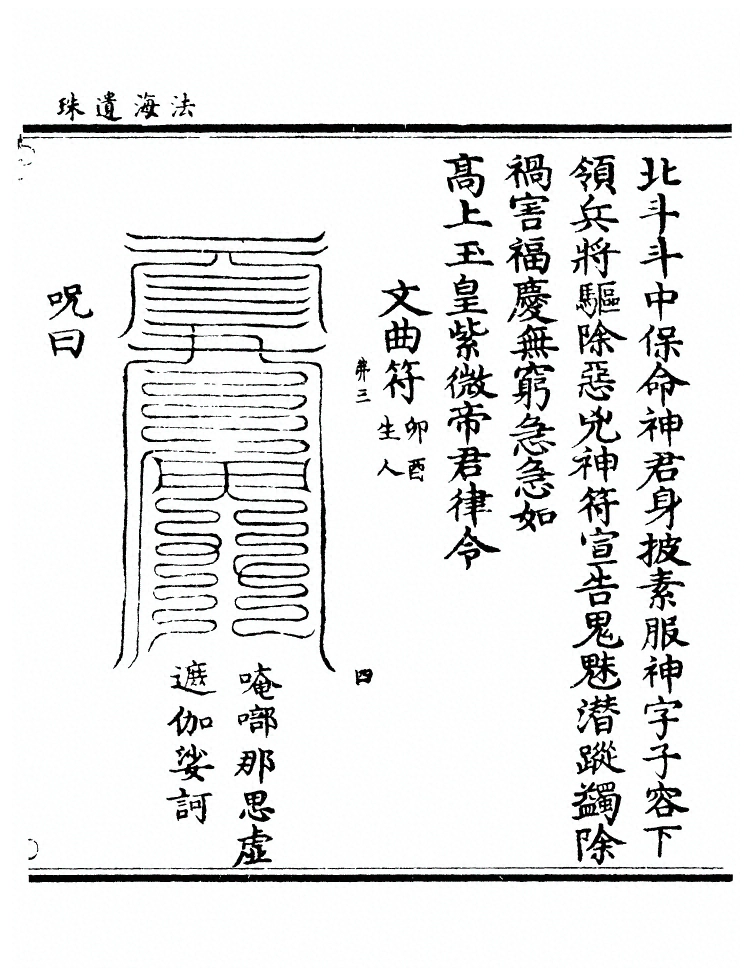 法海遺珠
北斗斗中保命神君身披素服神字子容下
領兵將驅除惡兇神符宣告鬼魅潛蹤蠲除
禍害福慶無窮急急如
高上玉皇紫微帝君律令
文曲符
卯酉
生人
弟三
四
唵啣那思虛
遮伽娑訶
呪曰